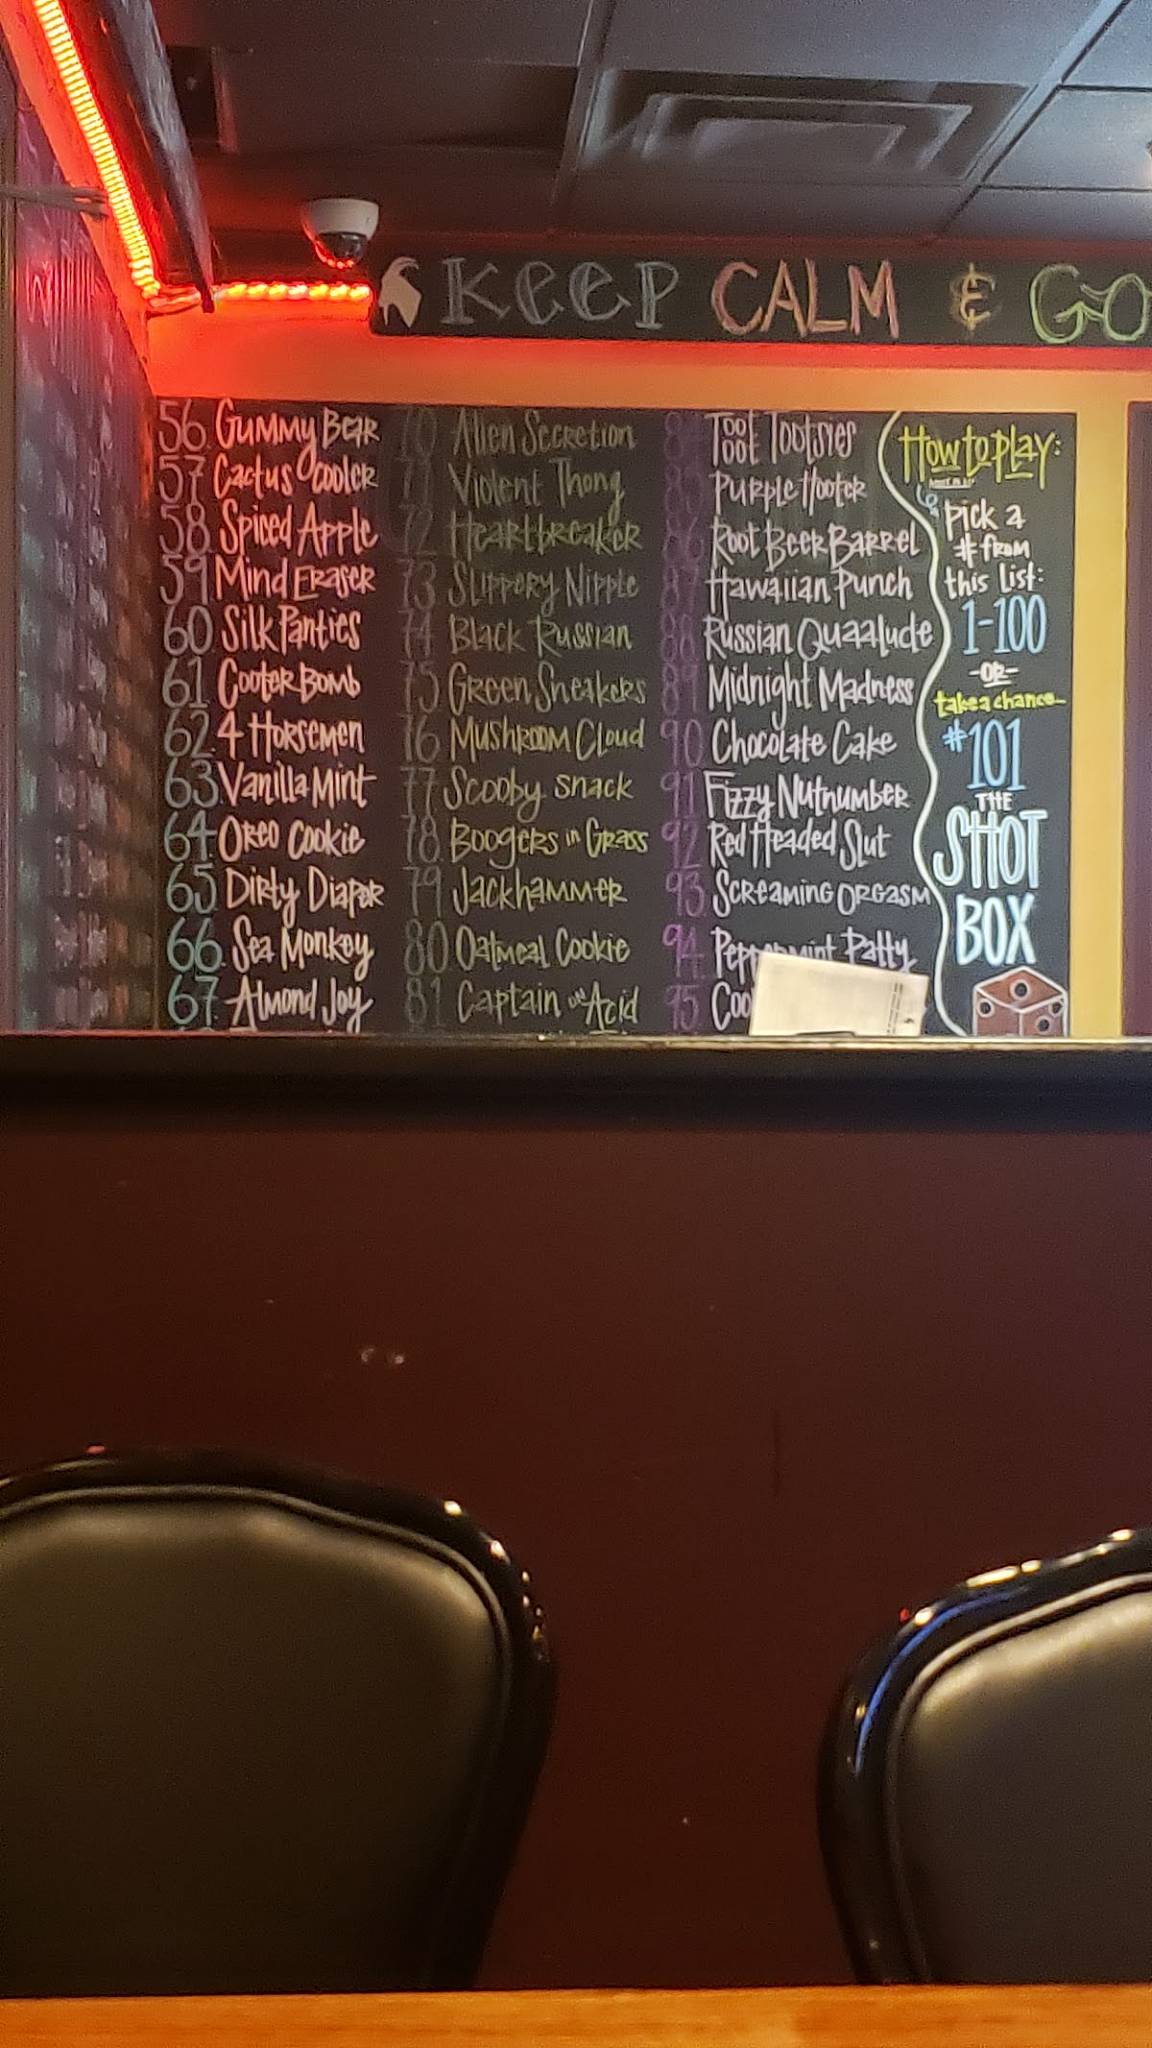 KEEP CALM & GO
56. Gummy Bear
57. Cactus Cooler
58. Spiced Apple
59. Mind Eraser
60. Silk Panties
61. Cooter Bomb
62. 4 Horsemen
63. Vanilla Mint
64. Oreo Cookie
65. Dirty Diaper
66. Sea Monkey
67. Almond Joy
70 Alien Secretion
71 Violent Thong
72 Heartbreaker
73 Slippery Nipple
74 Black Russian
75 Green Sneakers
76 Mushroom Cloud
77 Scooby Snack
78. Boogers in Grass
79 Jackhammer
80. Oatmeal Cookie
81 Captain on Acid
84 Toot Toot Tootsies
85 Purple Hooter
86 Root Beer Barrel
87 Hawaiian Punch
88 Russian Quaalude
89 Midnight Madness
90 Chocolate Cake
91 Fizzy Nutnumber
92 Red Headed Slut
93. Screaming Orgasm
94. Peppermint Patty
95. Coo
How to play:
pick a
# from
this list:
1-100
-or-
take a chance...
#101
THE
SHOT
BOX